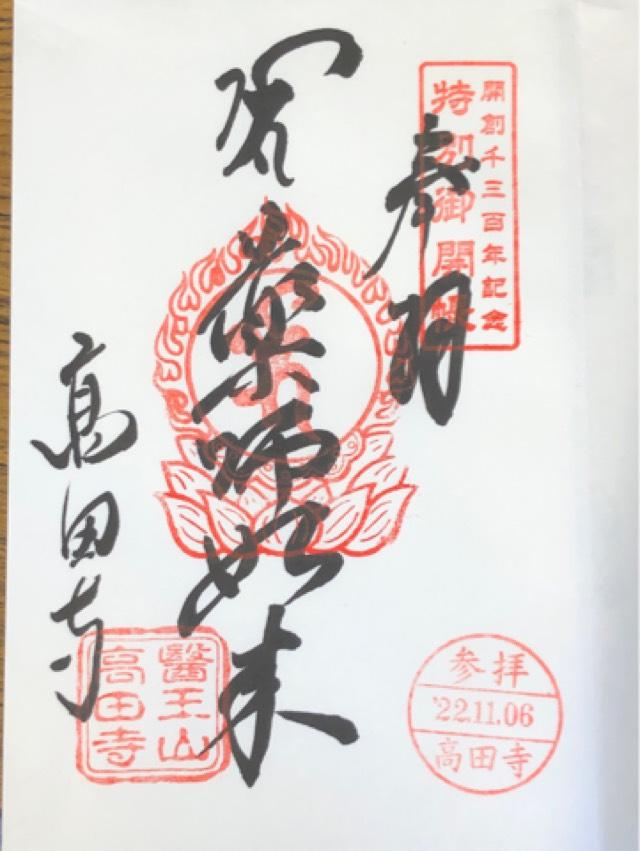 開創千三百年記念
特別御開帳
奉拝
薬師如来
高田寺
醫王山
高田寺
参拝
'22.11.06
高田寺